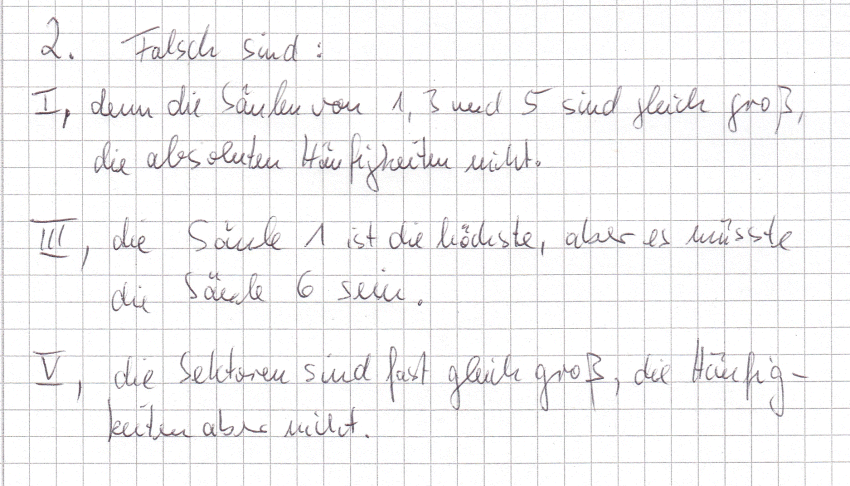 2. Falsch sind:
I, denn die Säulen von 1, 3 und 5 sind gleich groß,
die absoluten Häufigkeiten nicht.
III, die Säule 1 ist die höchste, aber es müsste
die Säule 6 sein.
V, die Sektoren sind fast gleich groß, die Häufig-
keiten aber nicht.